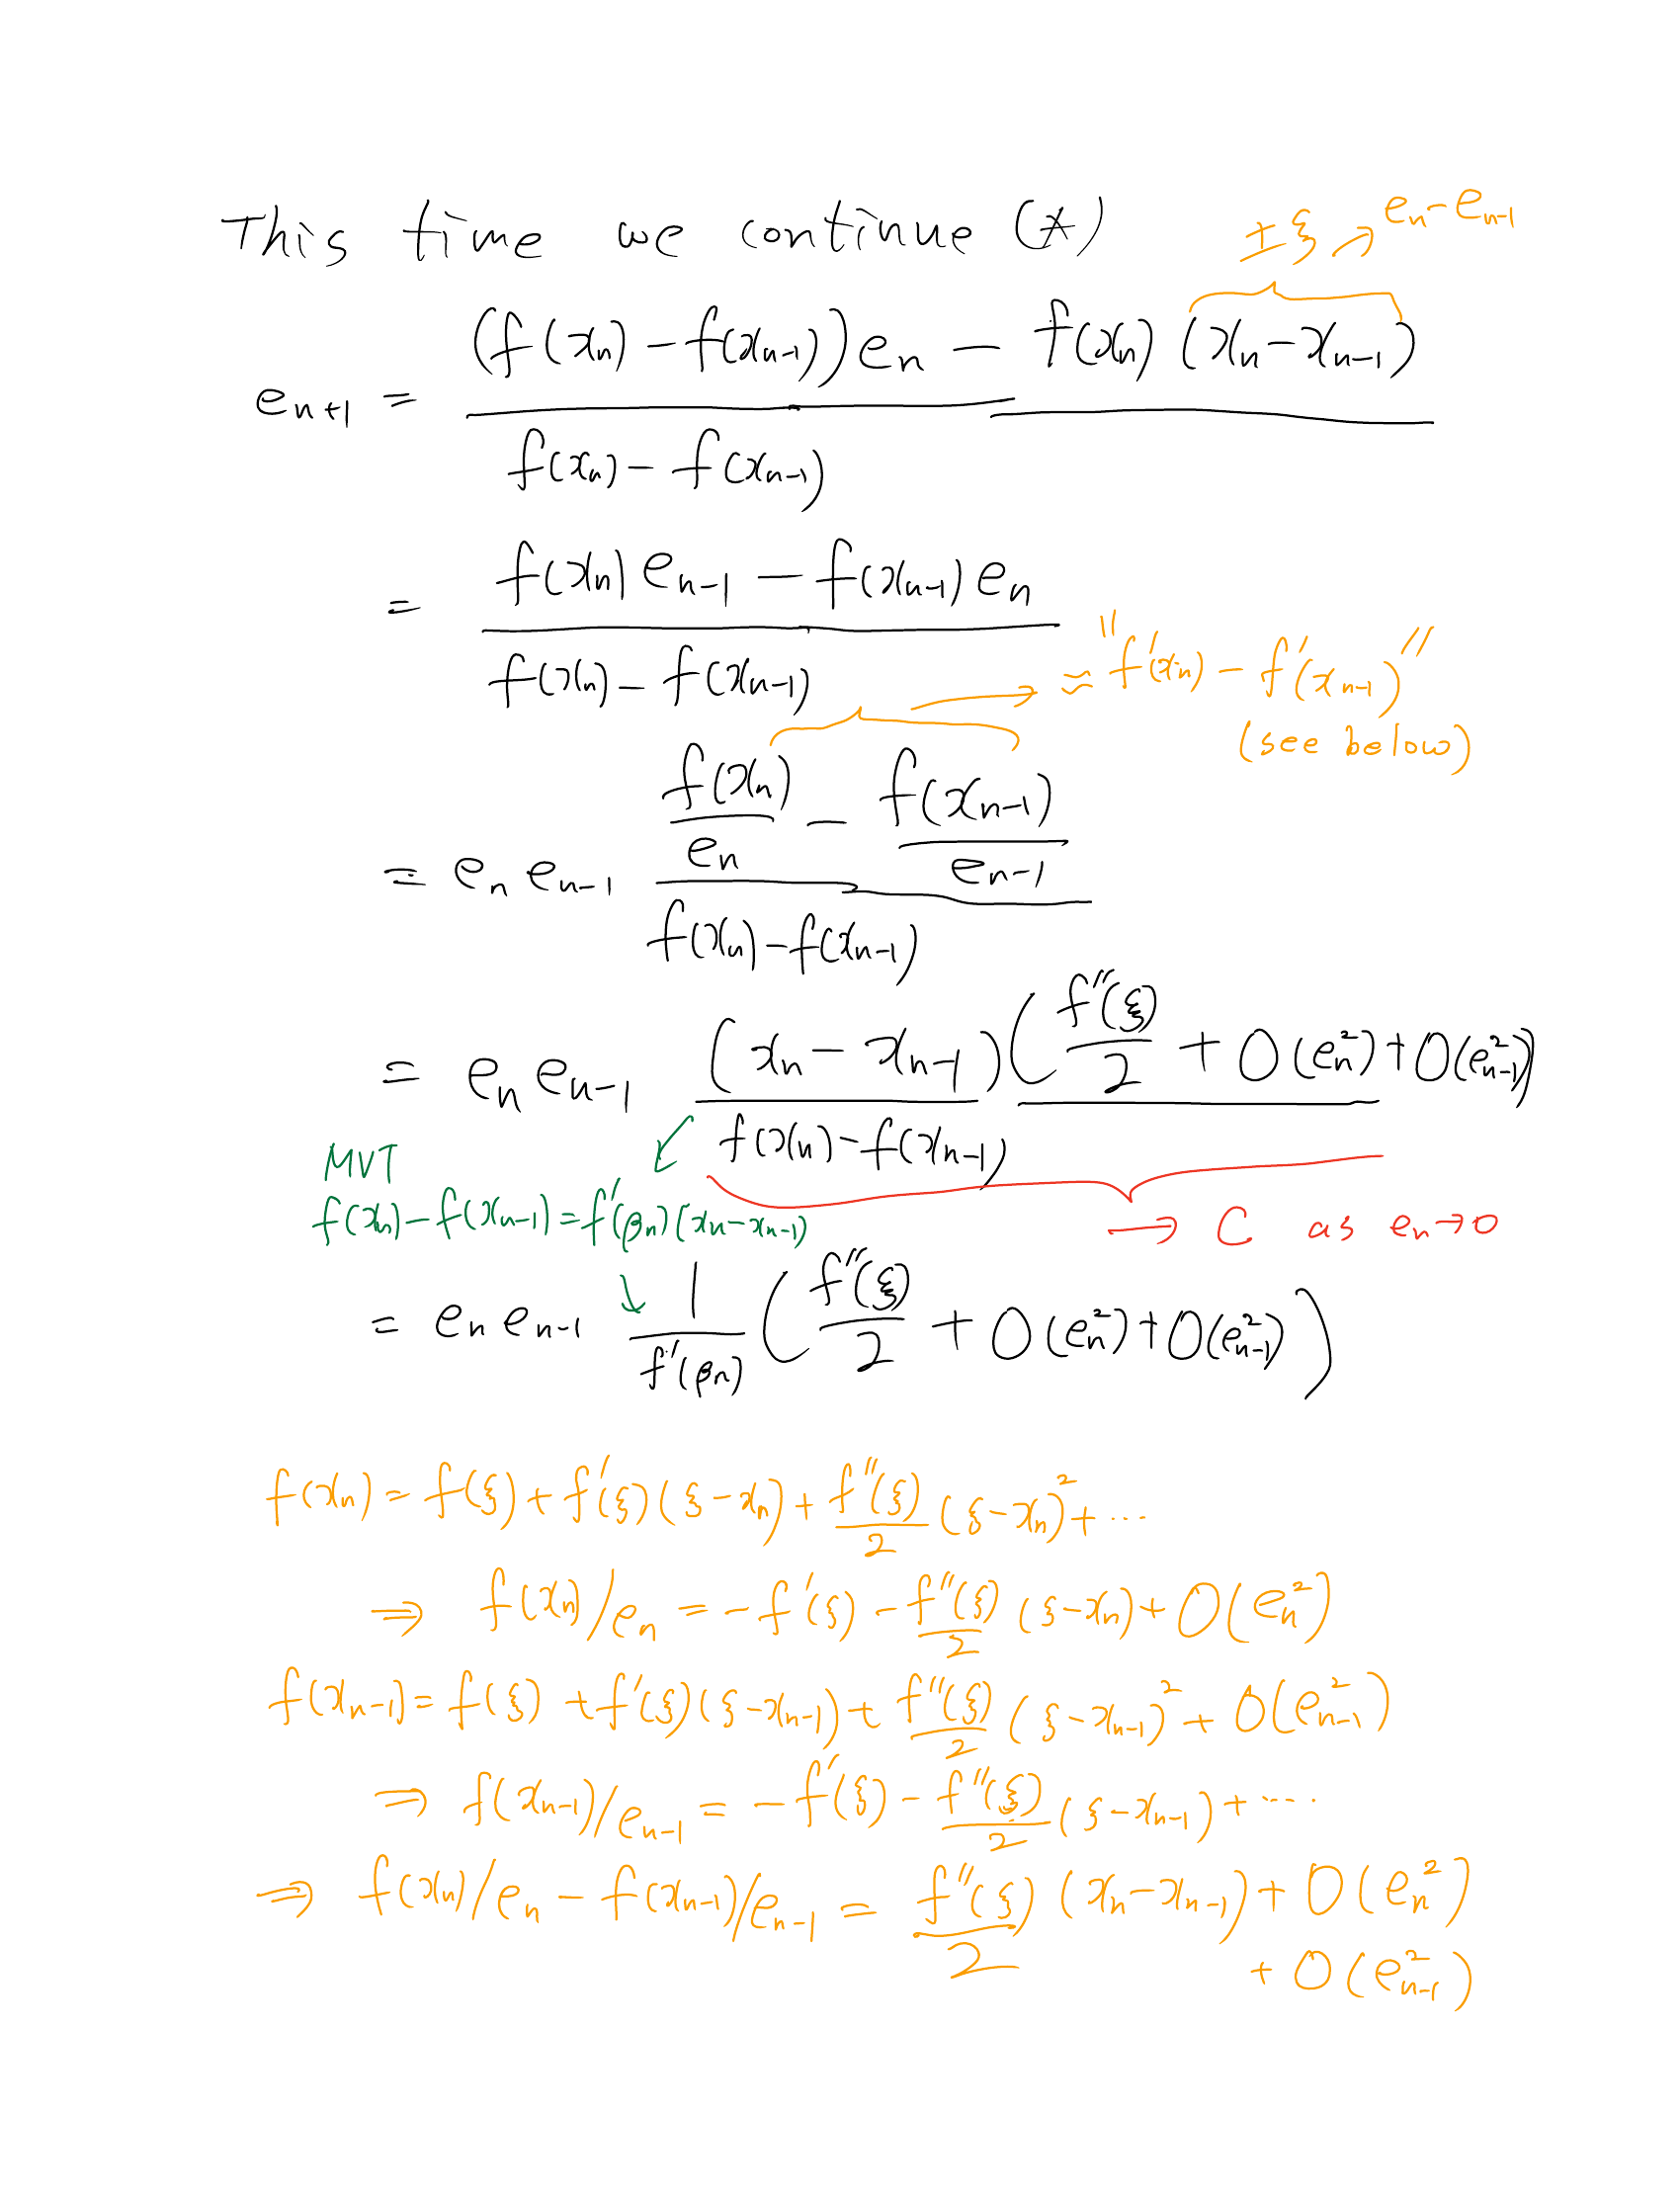 This time we continue (*)
±ξ → eₙ - eₙ₋₁
eₙ₊₁ = ((f(xₙ) - f(xₙ₋₁))eₙ - f(xₙ)(xₙ - xₙ₋₁)) / (f(xₙ) - f(xₙ₋₁))
= (f(xₙ)eₙ₋₁ - f(xₙ₋₁)eₙ) / (f(xₙ) - f(xₙ₋₁))
→ ≈ "f'(xₙ) - f'(xₙ₋₁)"
(see below)
= eₙ eₙ₋₁ (f(xₙ)/eₙ - f(xₙ₋₁)/eₙ₋₁) / (f(xₙ) - f(xₙ₋₁))
= eₙ eₙ₋₁ (xₙ - xₙ₋₁)(f''(ξ)/2 + O(eₙ²) + O(eₙ₋₁²)) / (f(xₙ) - f(xₙ₋₁))
MVT
f(xₙ) - f(xₙ₋₁) = f'(βₙ)(xₙ - xₙ₋₁)
→ C as eₙ → 0
= eₙ eₙ₋₁ 1/f'(βₙ) (f''(ξ)/2 + O(eₙ²) + O(eₙ₋₁²))
f(xₙ) = f(ξ) + f'(ξ)(ξ - xₙ) + f''(ξ)/2 (ξ - xₙ)² + ...
⇒ f(xₙ)/eₙ = -f'(ξ) - f''(ξ)/2 (ξ - xₙ) + O(eₙ²)
f(xₙ₋₁) = f(ξ) + f'(ξ)(ξ - xₙ₋₁) + f''(ξ)/2 (ξ - xₙ₋₁)² + O(eₙ₋₁²)
⇒ f(xₙ₋₁)/eₙ₋₁ = -f'(ξ) - f''(ξ)/2 (ξ - xₙ₋₁) + ....
⇒ f(xₙ)/eₙ - f(xₙ₋₁)/eₙ₋₁ = f''(ξ)/2 (xₙ - xₙ₋₁) + O(eₙ²)
+ O(eₙ₋₁²)